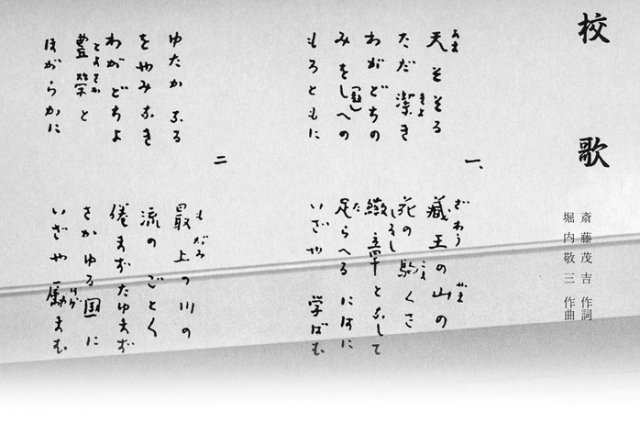 校歌
斎藤茂吉 作詞
堀内敬三 作曲
一、
天そそる 蔵王の山の
ただ潔き 花の駒くさ
わがどちの 徽章となして
みをしへの 足らへるにはに
もろともに いざや 学ばむ
二
ゆたかなる 最上の川の
をやみなき 流のごとく
わがどちよ 倦まずたゆまず
豊栄と さかゆる国に
ほがらかに いざや励まむ